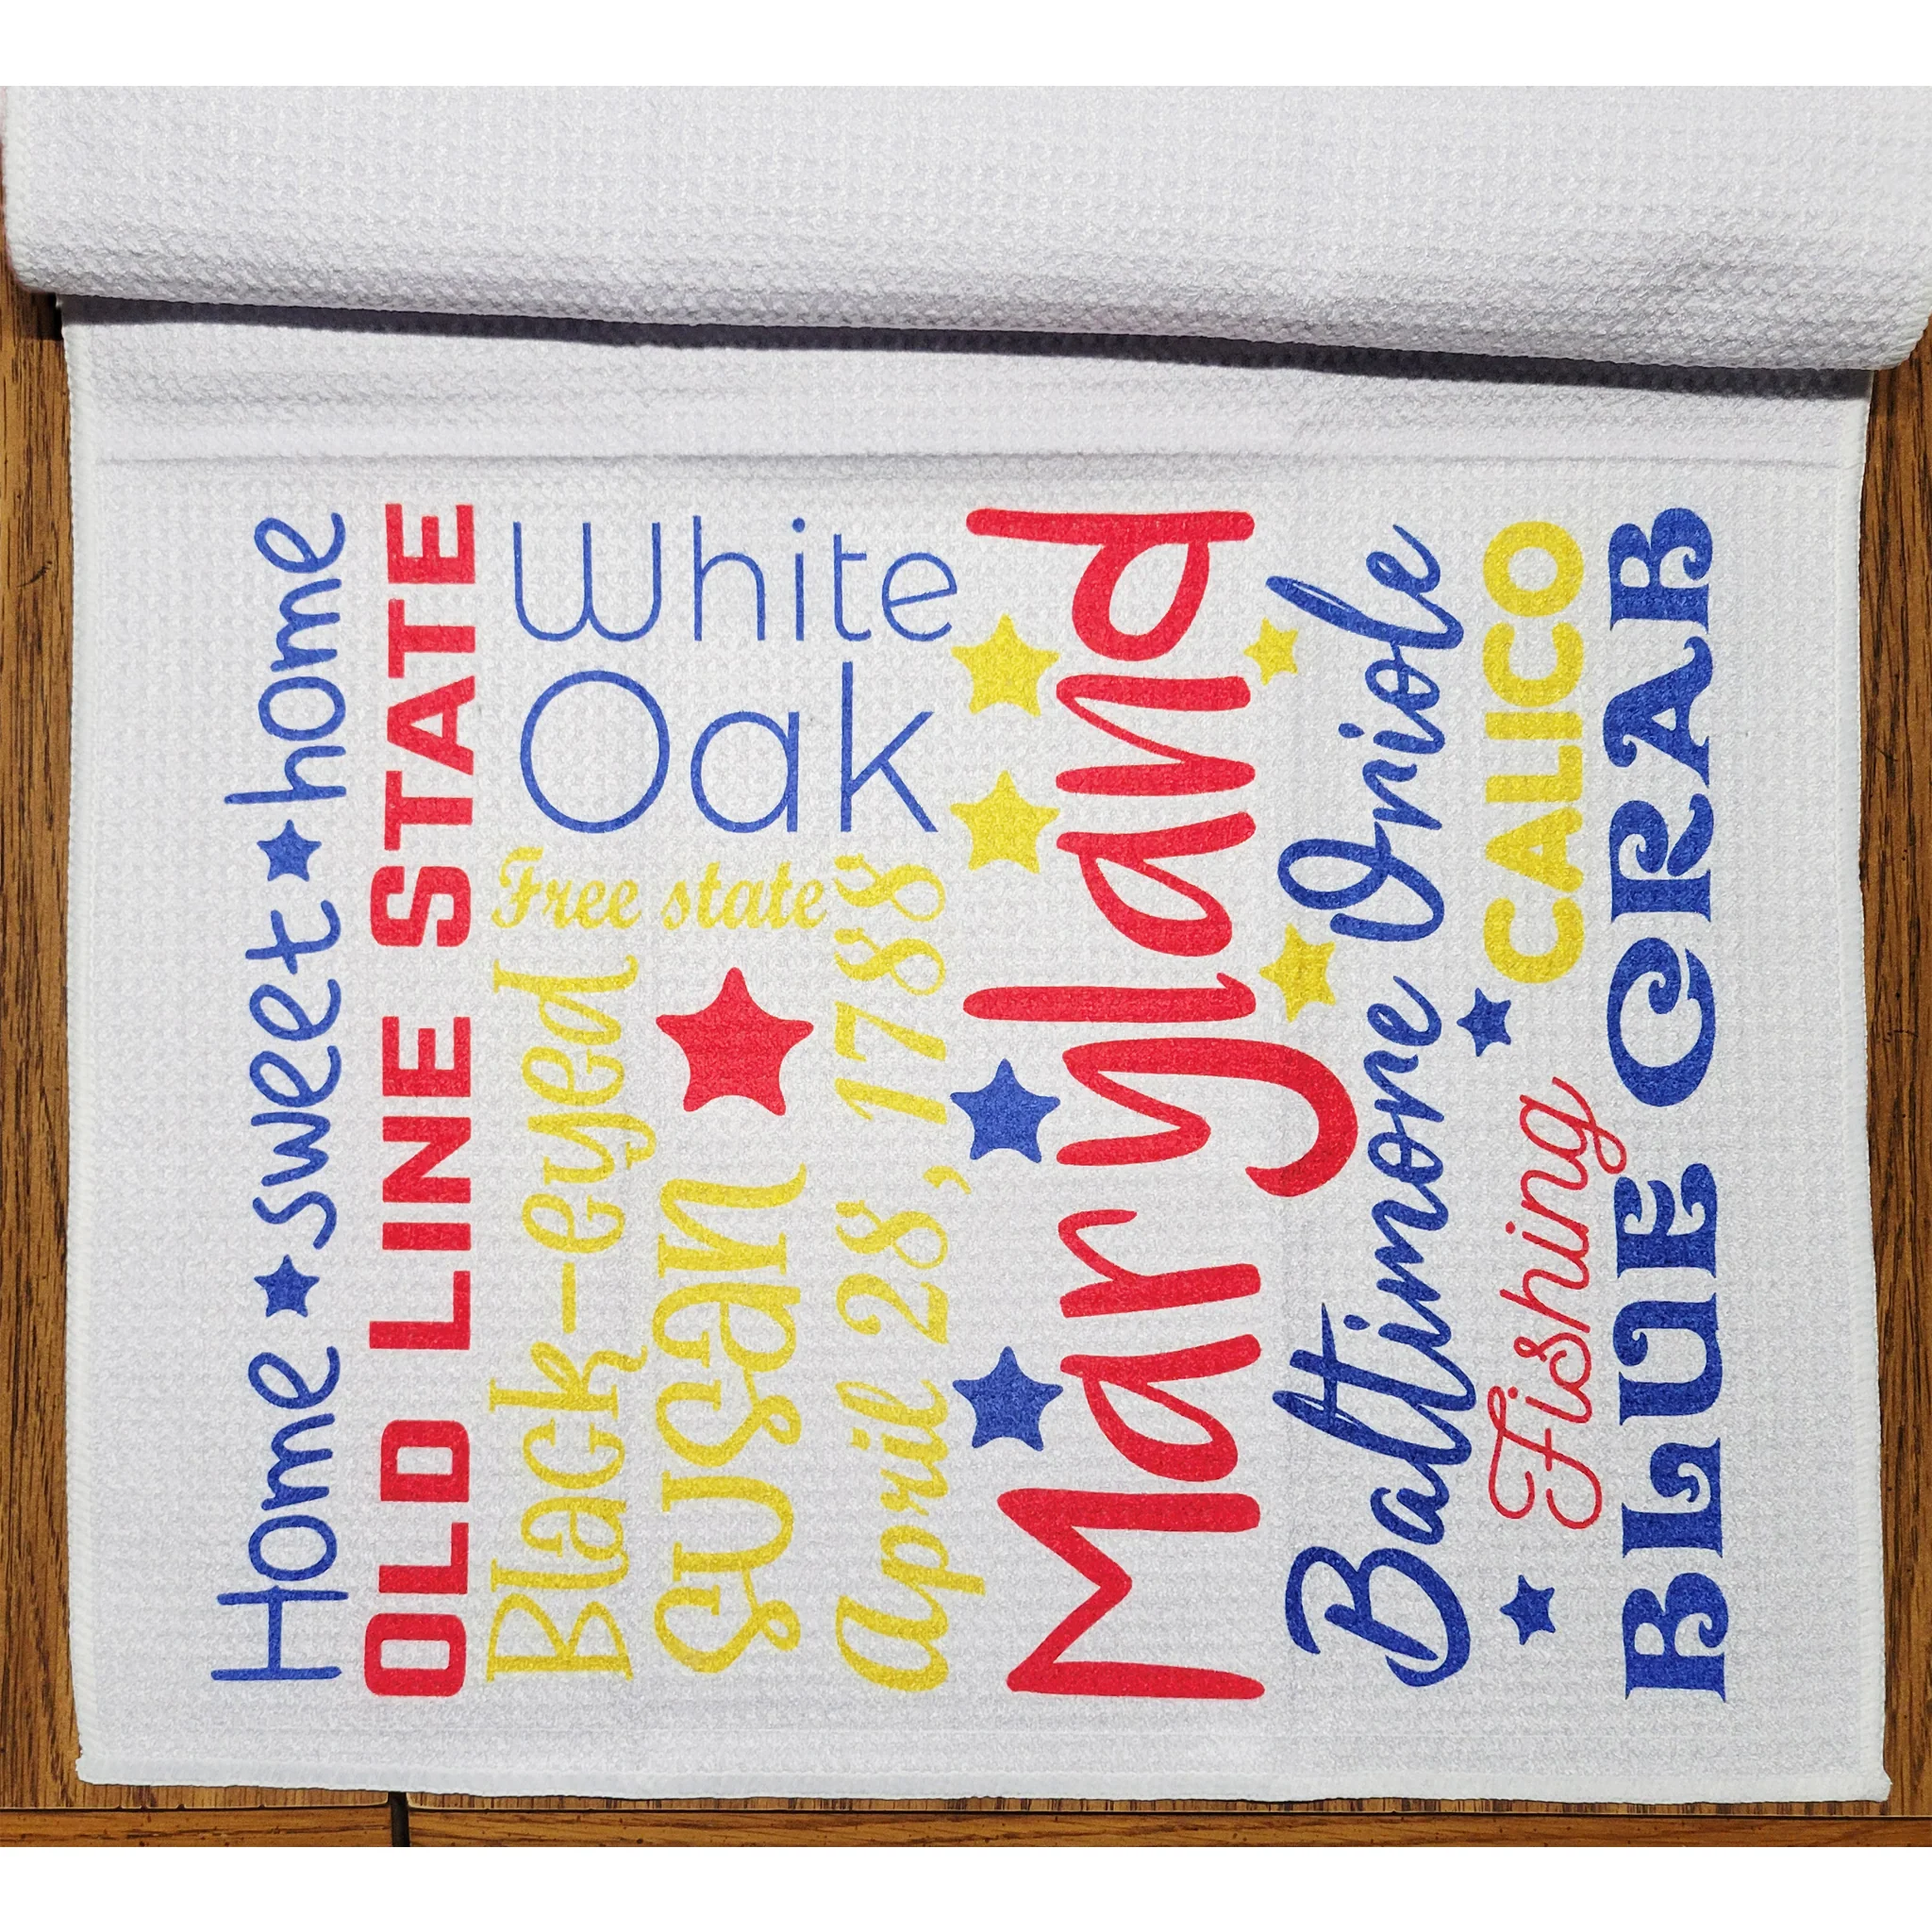 Home sweet home
OLD LINE STATE
Black-eyed
susan
Free state
White
Oak
April 28, 1788
Maryland
Baltimore Oriole
Fishing
CALICO
BLUE CRAB